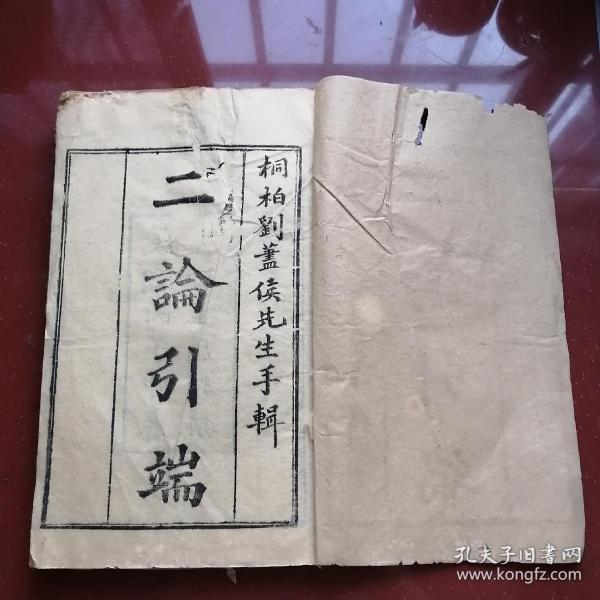 桐柏劉蓋侯先生手輯
二論引端
孔夫子旧書网
www.kongfz.com